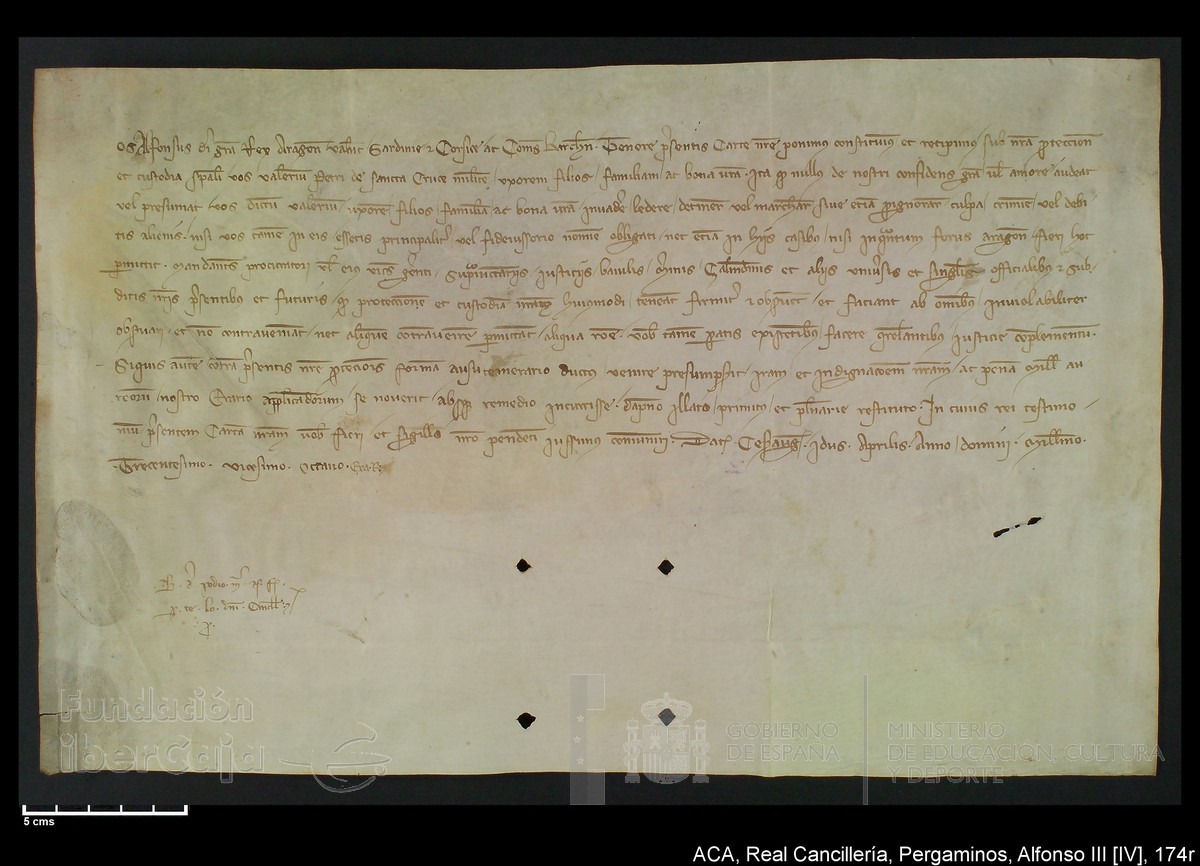 os Alfonsus dei gra Rex Aragon Valenc Sardinie et Corsice ac Comes Barchn. Tenore presentis Carte nre ponimus constituimus et recipimus sub nra proteccion
et custodia spali vos Valerium Petri de Sancta Cruce milite, uxorem filios, familiam ac bona vra. Ita quod nullus de nostri confidens gra vel amore audeat
vel presumat vos dictum Valerium uxore filios, familia ac bona vra invadere ledere, detinere vel marchare, sive etia pignorar culpa, crimine, vel debi
tis alienis, nisi vos tamen in eis essetis principalit vel fideiussorio nomine obligati, nec etia in hiis casibus, nisi inquantum forus aragon fieri hoc
permittit. Mandantes procuratori vel eius vices gerenti, suprajunctariis justiciis baiulis, merinis, Calmedinis et aliis universis et singulis officialibus et sub
ditis nris presentibus et futuris, quod proteccione et custodia nram huiusmodi, teneat firmiter et observet, et faciant ab omnibus inviolabiliter
observari, et no contraveniat, nec aliquem contravenire permittat, aliqua roe. Vob tamen paratis existetibus, facere querelantibus, justicie complementu.
Siquis aute contra presentis nre proteccionis formam ausu temerario ductus venire presumpserit, iram et indignacoem nram, ac penam mille au
reorum, nostro Erario applicandorum se noverit, absque remedio incurrisse, dapno illato, primitus, et plenarie restituto. In cuius rei testimo
nium presentem Cartam nram vob fieri, et sigillo nro pendenti jussimus comuniri. Dat Cesaraug. idus. Aprilis. Anno domini. Millmo.
Trecentesimo. vicesimo. octavo.
5 cms
Fundación
iberCaja
GOBIERNO
DE ESPAÑA
MINISTERIO
DE EDUCACIÓN, CULTURA
Y DEPORTE
ACA, Real Cancillería, Pergaminos, Alfonso III [IV], 174r